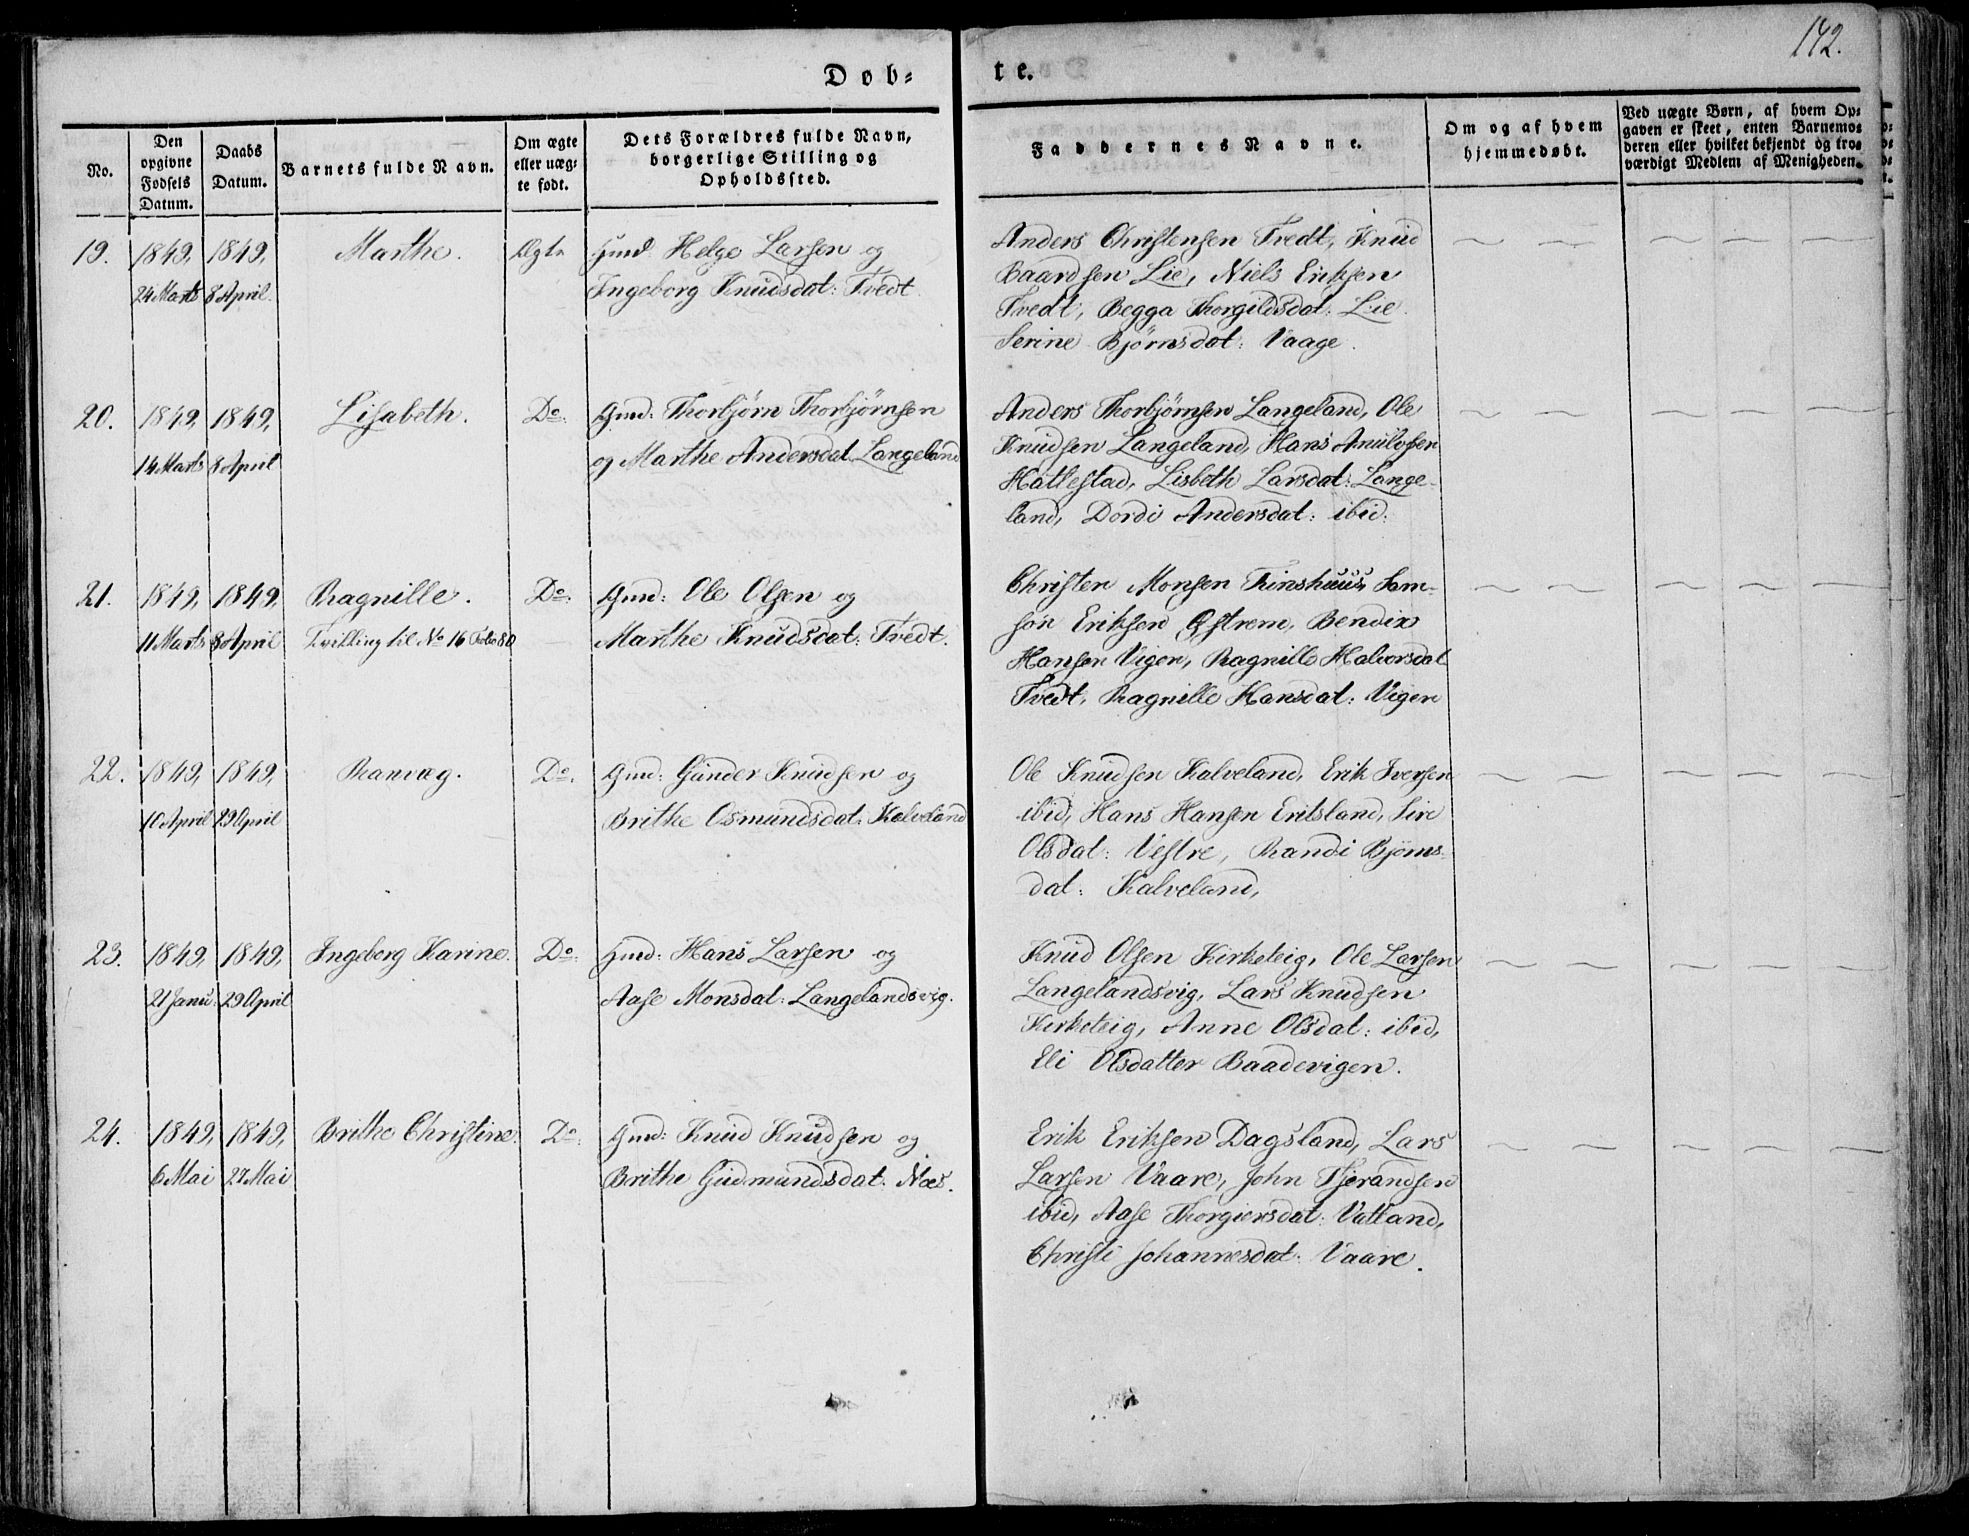 142.
Døb-
te.
No.
Den opgivne Fødsels Datum.
Daabs Datum.
Barnets fulde Navn.
Om ægte eller uægte født.
Dets Forældres fulde Navn, borgerlige Stilling og Opholdssted.
Faddernes Navne.
Om og af hvem hjemmedøbt.
Ved uægte Børn, af hvem Op-
gaven er skeet, enten Barnemo-
deren eller hvilket bekjendt og tro-
værdigt Medlem af Menigheden.
19. 1849, 1849, Marthe. Ægte Gmd. Helge Larsen og
24 Marts 8 April. Ingeborg Knudsdat: Tvedt.
Anders Christensen Tvedt, Knud
Baardsen Lie, Niels Eriksen
Tvedt, Begga Thorgildsdat: Lie.
Serine Bjørnsdat: Vaage.
20. 1849, 1849, Lisabeth. Do. Gmd: Thorbjørn Thorbjørnsen
14 Marts 8 April og Marthe Andersdat. Langeland
Anders Thorbjørnsen Langeland, Ole
Knudsen Langeland, Hans
Hattestad, Lisbeth Larsdat: Lange-
land, Dordi Andersdat: ibid:
21. 1849, 1849, Ragnille. Do. Gmd: Ole Olsen og
11 Marts 8 April Tvilling til No 16 Folio 80 Marthe Knudsdat: Tvedt.
Christen Monsen Sam-
son Eriksen Østrem, Bendix
Hansen Vigen, Ragnille Halvorsdat
Tvedt, Ragnille Hansdat: Vigen
22. 1849, 1849, Ranveg. Do. Gmd: Gunder Knudsen og
10 April 29 April Brithe Osmundsdat: Kalveland
Ole Knudsen Kalveland, Erik Iversen
ibid, Hans Hansen Eritsland, Siri
Olsdat: Vestre, Randi Bjørns-
dat: Kalveland,
23. 1849, 1849, Ingeborg Karine. Do. Gmd: Hans Larsen og
21 Janu: 29 April Aase Monsdat: Langelandsvig.
Knud Olsen Kirketeig, Ole Larsen
Langelandsvig, Lars Knudsen
Kirketeig, Anne Olsdat: ibid,
Eli Olsdatter Baadevigen.
24. 1849, 1849, Brithe Christine. Do. Gmd: Knud Knudsen og
6 Mai 27 Mai Brithe Gudmundsdat: Næs.
Erik Eriksen Dagsland, Lars
Larsen Vaare, John Tjerandsen
ibid, Aase Thorgiersdat: Vatland,
Christi Johannesdat: Vaare.